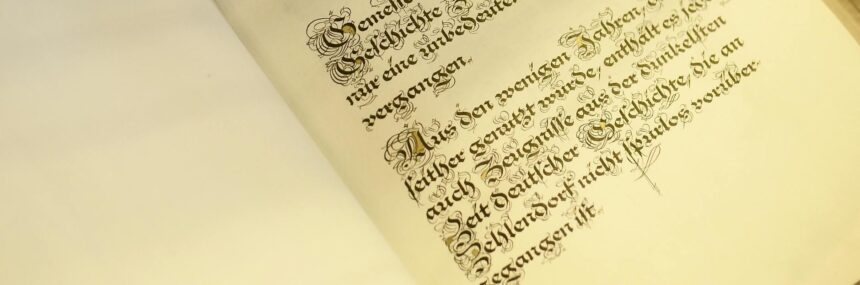 Geſchichte
nur eine unbedeuten
vergangen.
Aus den wenigen Jahren,
ſeither genutzt wurde, enthält es
auch Zeugniſſe aus der dunkelſten
Zeit deutſcher Geſchichte, die an
Zehlendorf nicht ſpurlos vorüber
gegangen iſt.